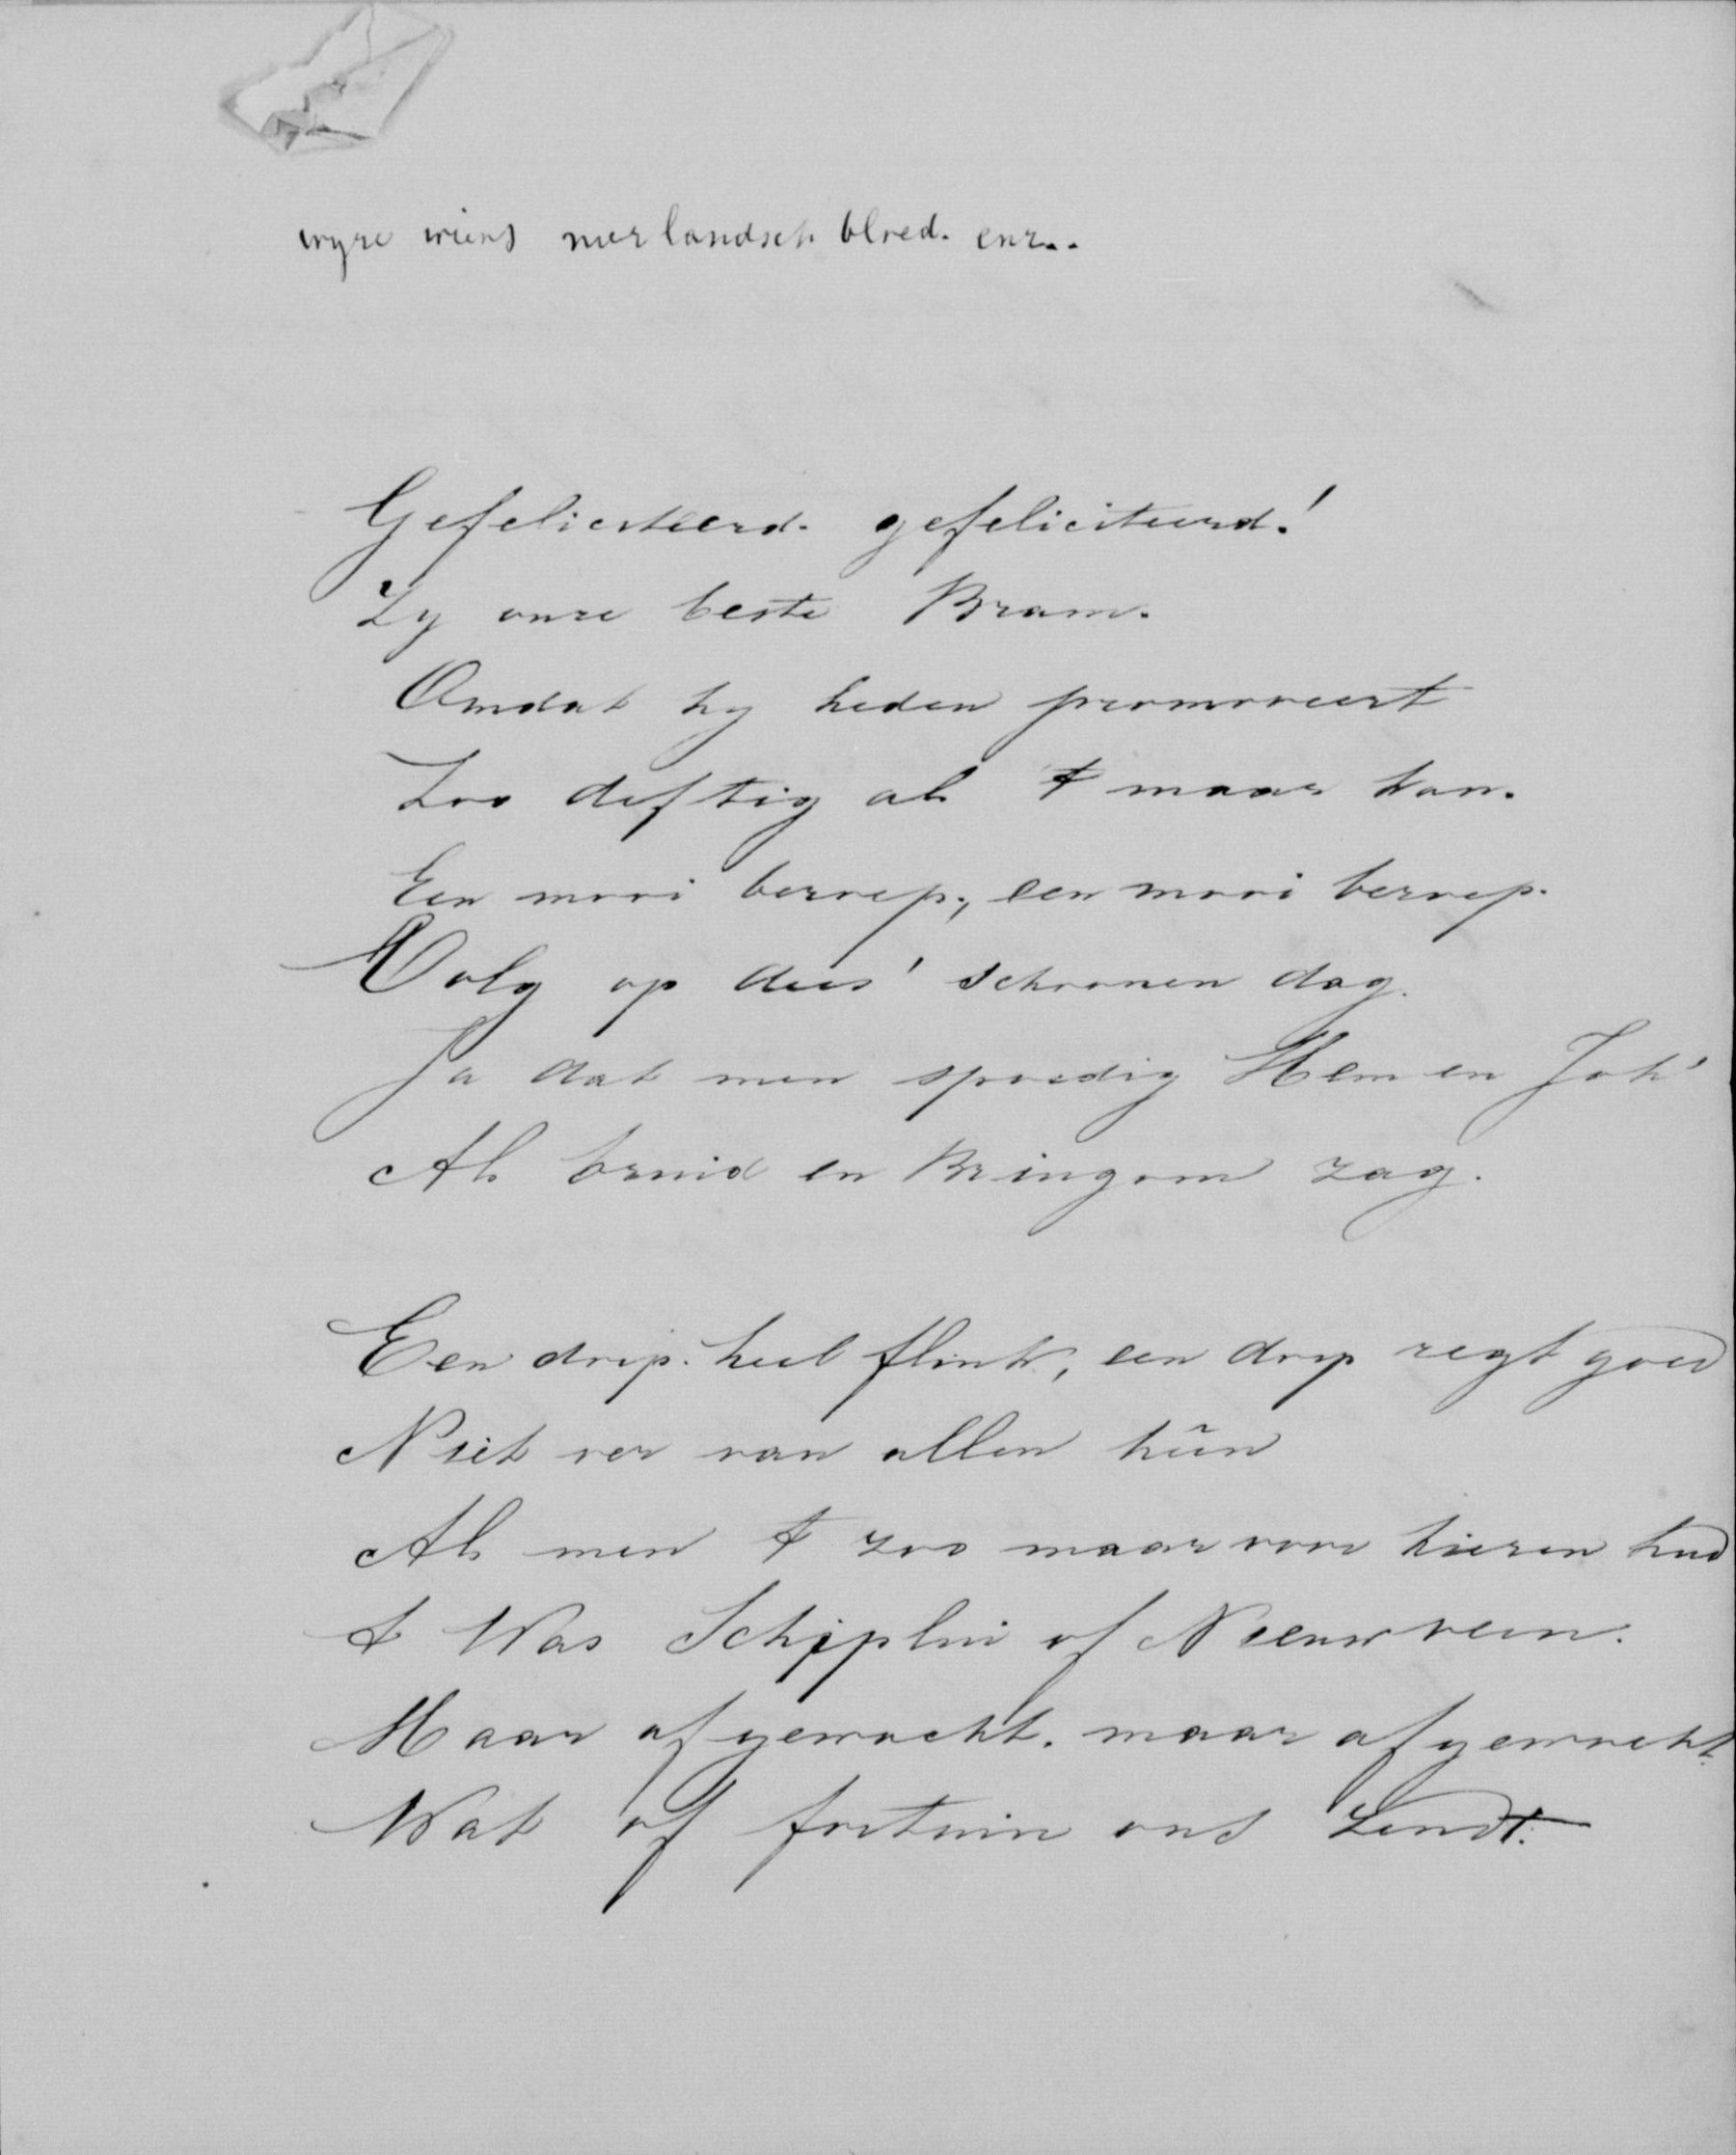 wyze wiens neerlandsch bloed. enz..
Gefeliciteerd. gefeliciteerd!
Zy onze beste Bram.
Omdat hy heden promoveert
Zoo deftig als t maar kan.
Een mooi beroep, een mooi beroep.
Volg op dees' schoonen dag.
Ja dat men spoedig Hem en Joh'
Als bruid en Bruigom zag.
Een dorp. heel flink, een dorp regt goed
Niet ver van allen heen
Als men t zoo maar voor kiezen had
t Was Schipluî of Nieuwveen.
Maar afgewacht. maar afgewacht.
Wat of fortuin ons zendt.